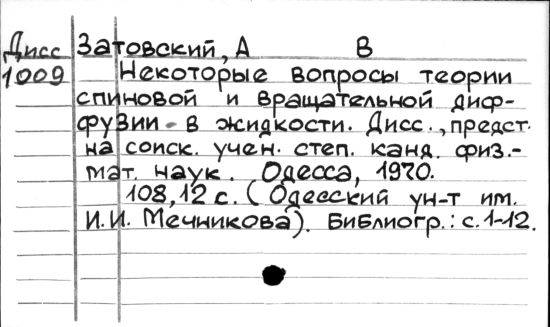 Дисс Затовский, А В
1009 Некоторые вопросы теории
спиновой и вращательной диф-
фузии в жидкости. Дисс., предст.
на соиск. учен. степ. канд. физ.-
мат. наук. Одесса, 1970.
108,12 с. (Одесский ун-т им.
И.И. Мечникова). Библиогр.: с.1-12.